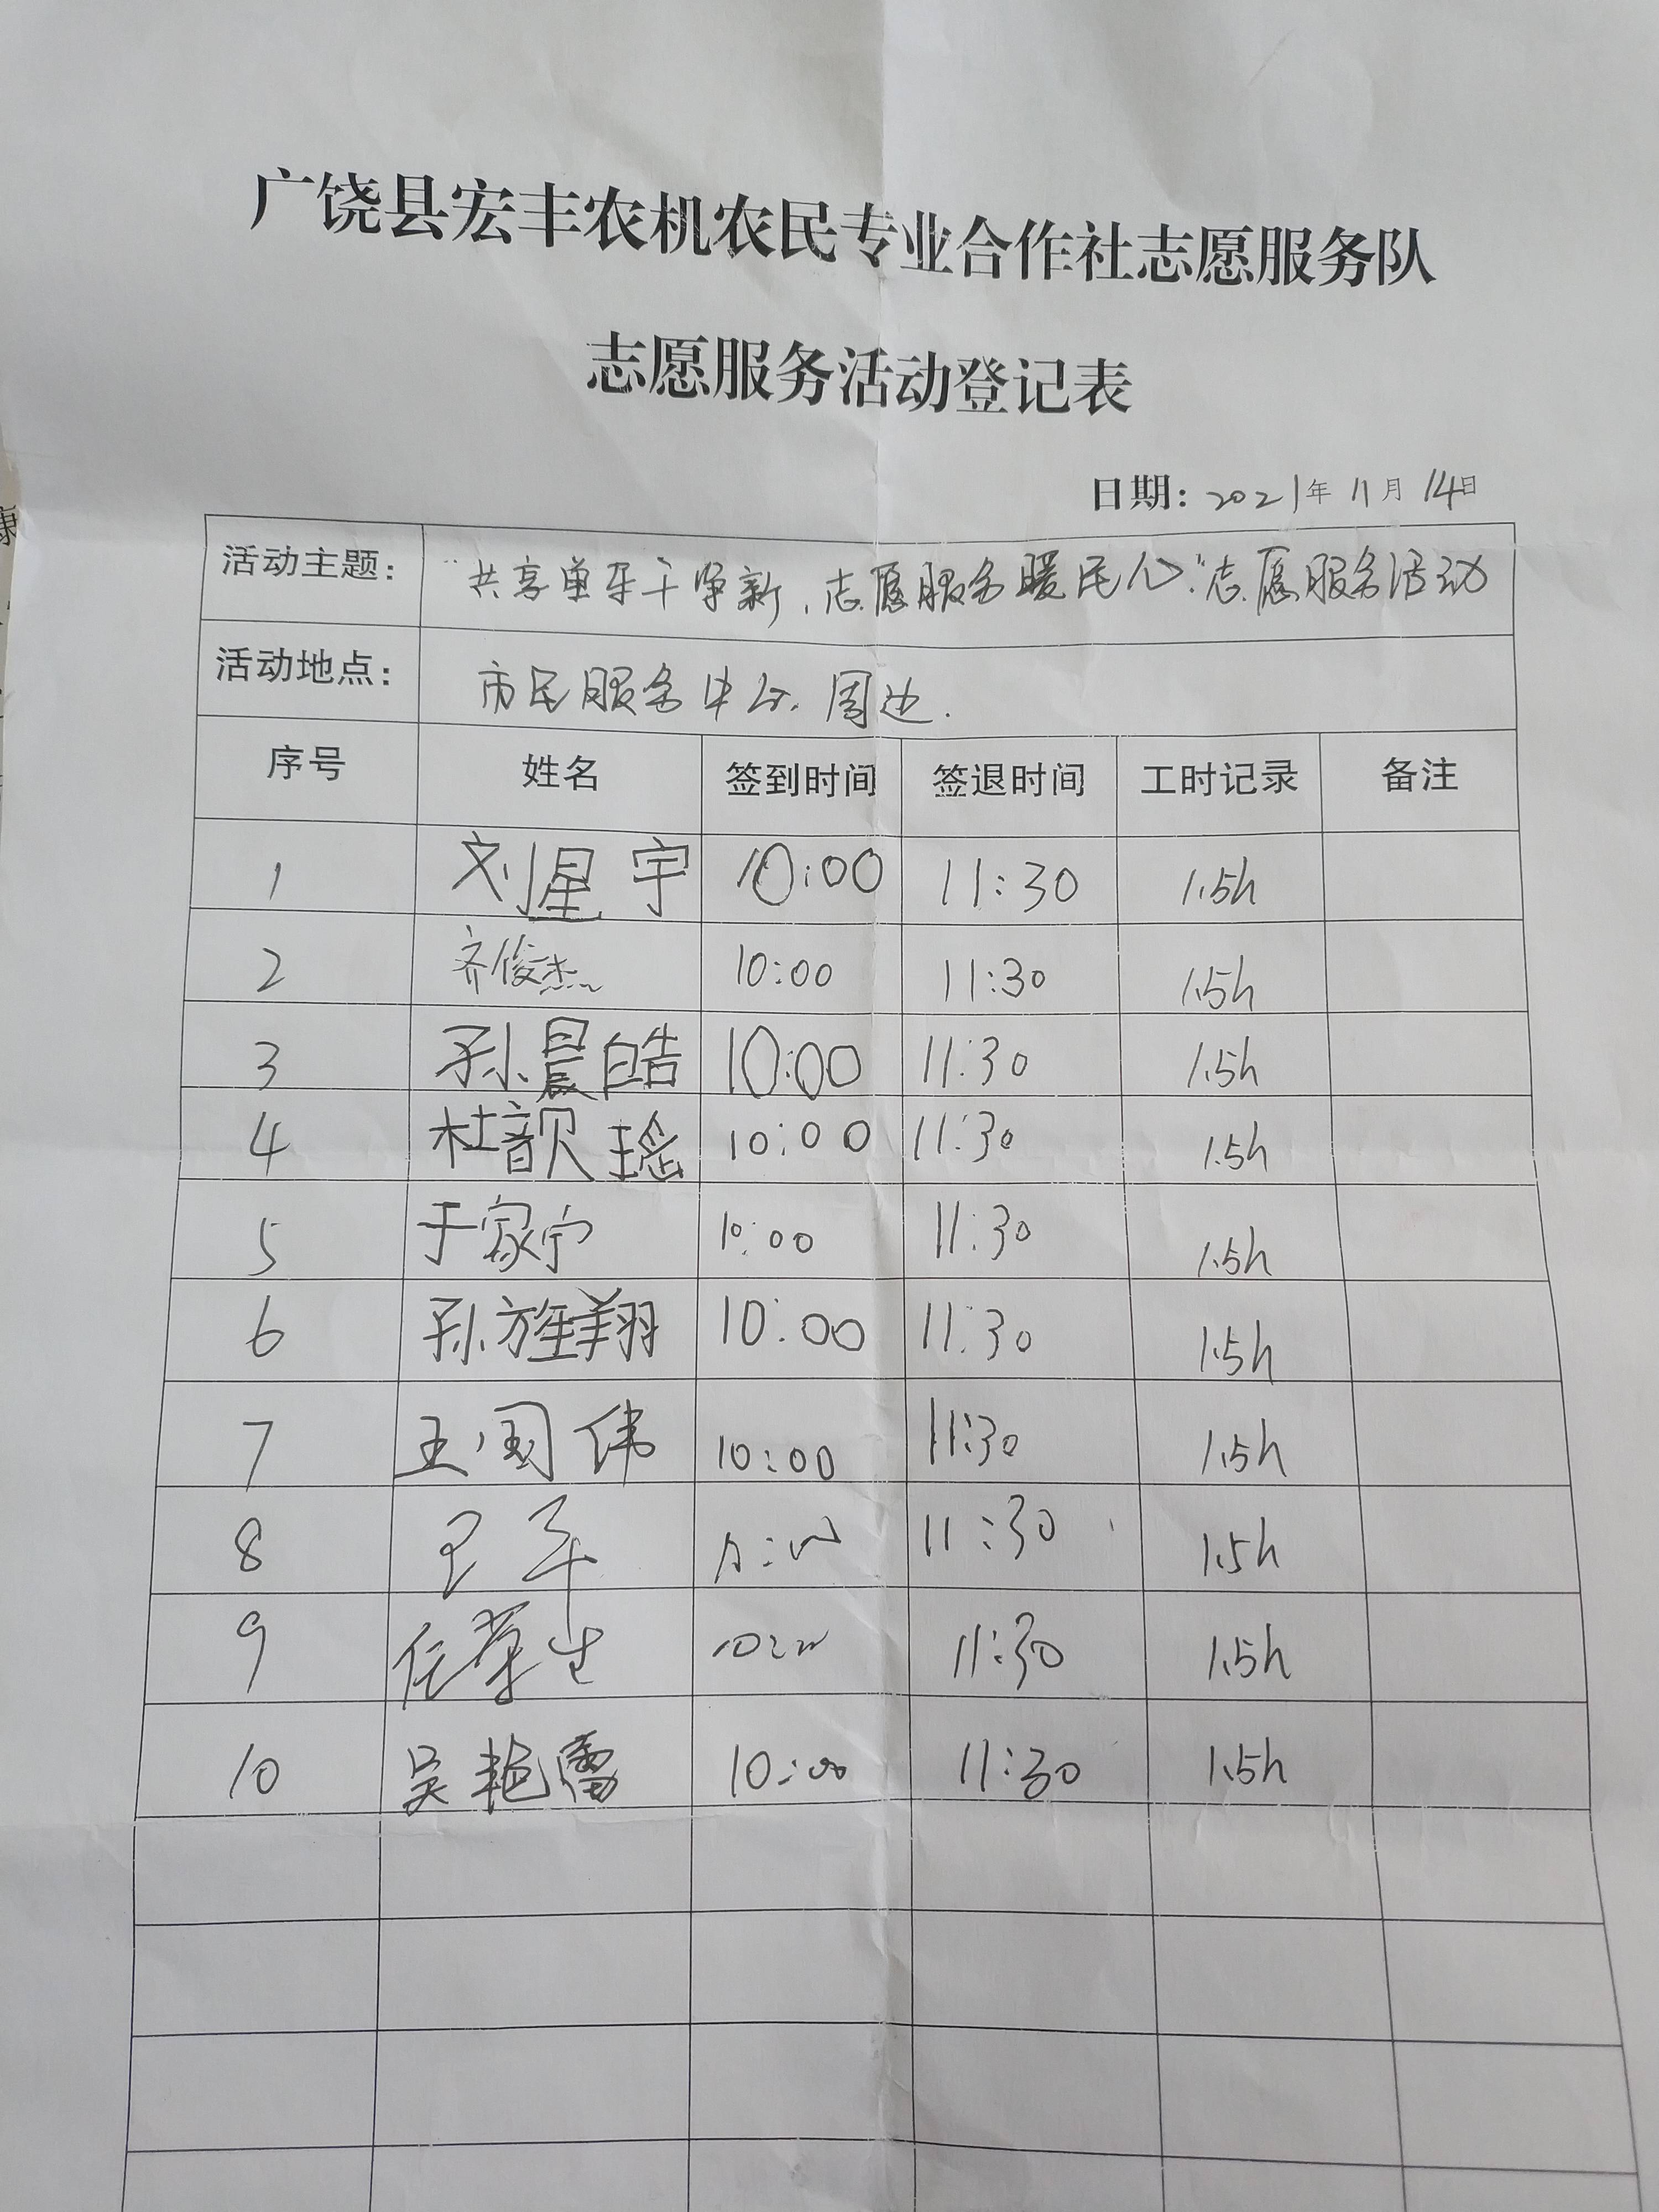 广饶县宏丰农机农民专业合作社志愿服务队
志愿服务活动登记表
日期：2021年11月14日
活动主题： “共享单车干净新，志愿服务暖民心”志愿服务活动
活动地点： 市民服务中心周边.
序号 姓名 签到时间 签退时间 工时记录 备注
1 刘星宇 10:00 11:30 1.5h
2 齐俊杰 10:00 11:30 1.5h
3 孙晨皓 10:00 11:30 1.5h
4 杜歆瑶 10:00 11:30 1.5h
5 于家宁 10:00 11:30 1.5h
6 孙旌翔 10:00 11:30 1.5h
7 王国伟 10:00 11:30 1.5h
8 11:30 1.5h
9 任学生 10:00 11:30 1.5h
10 吴艳雷 10:00 11:30 1.5h
康